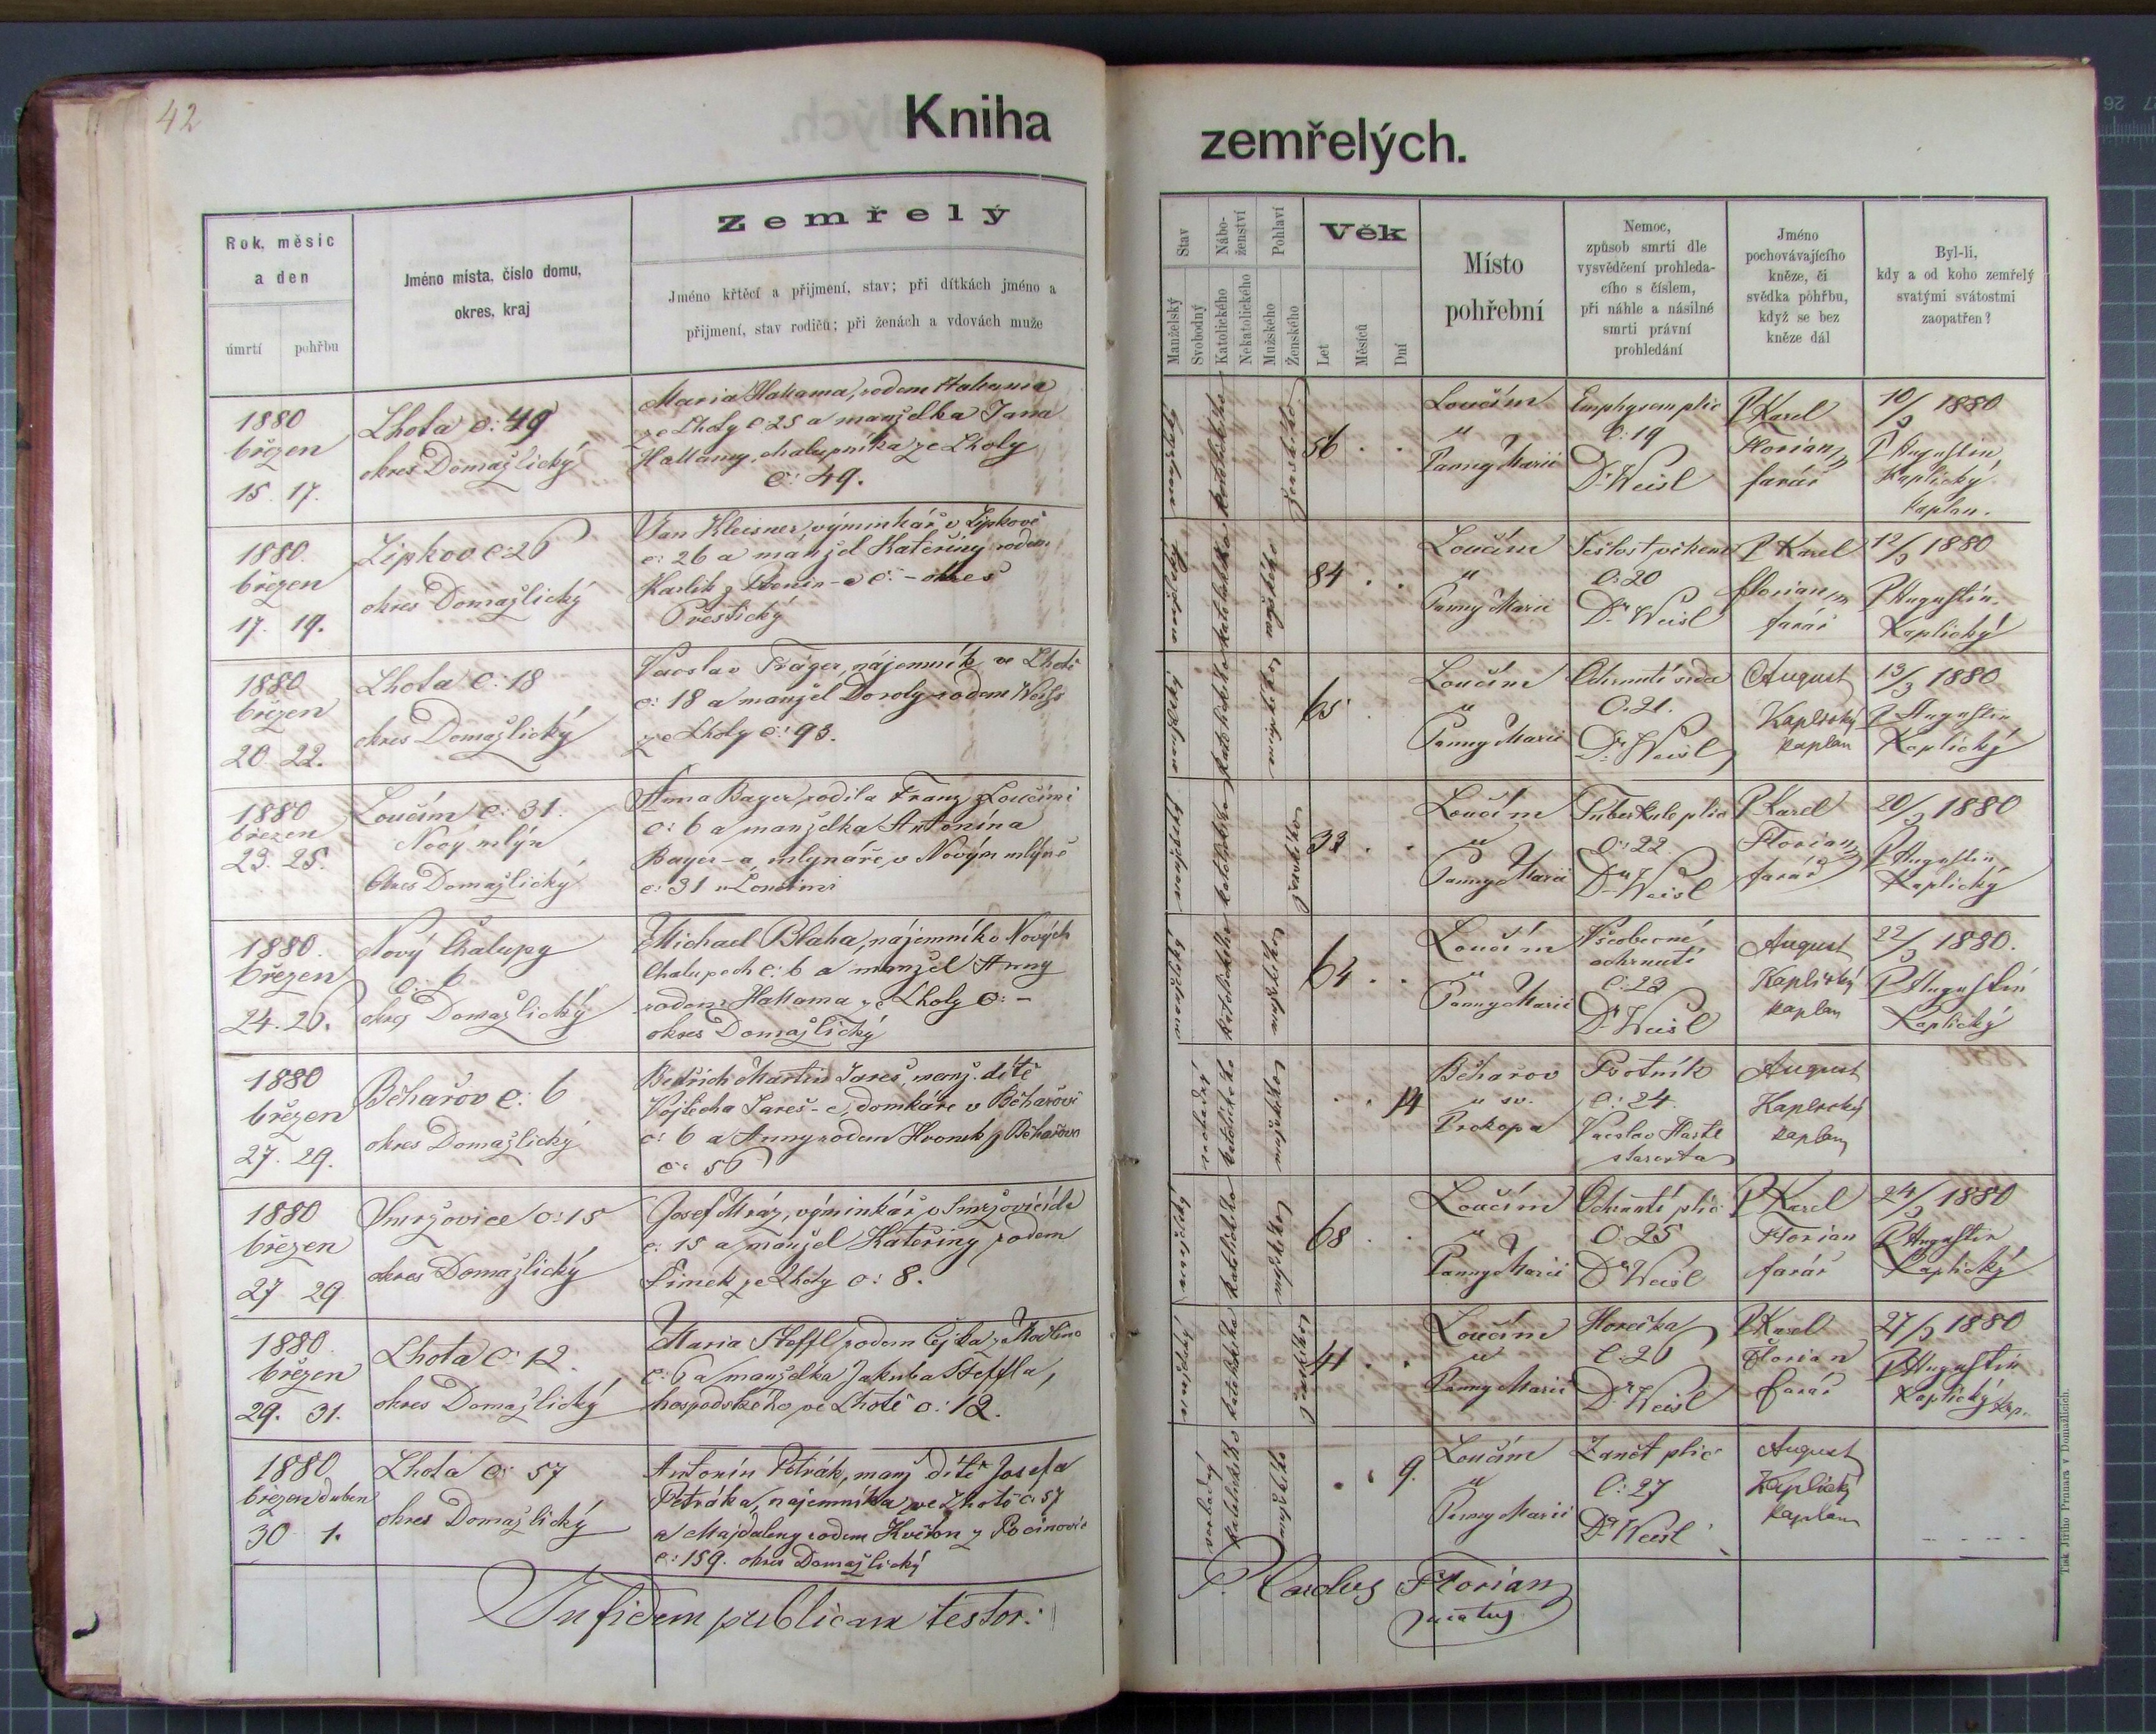 42
Kniha
zemřelých.
Rok, měsíc
a den
úmrtí
pohřbu
Jméno místa, číslo domu,
okres, kraj
Zemřelý
Jméno křtěcí a přijmení, stav; při dítkách jméno a
přijmení, stav rodičů; při ženách a vdovách muže
Stav
Manželský
Svobodný
Nábo-
ženství
Katolického
Nekatolického
Pohlaví
Mužského
Ženského
Věk
Let
Měsíců
Dní
Místo
pohřební
Nemoc,
způsob smrti dle
vysvědčení prohleda-
cího s číslem,
při náhle a násilné
smrti právní
prohledání
Jméno
pochovávajícího
kněze, či
svědka póhřbu,
když se bez
kněze dál
Byl-li,
kdy a od koho zemřelý
svatými svátostmi
zaopatřen?
1880
březen
15. 17.
Lhota č: 49
okres Domažlický
Maria Hallama, rodem
ze Lhoty č: 25 a manželka Jana
Hallamy, chalupníka ze Lhoty
č: 49.
katolického
ženského
56 . .
Loučim
u
Panny Marie
plic
č: 19
Dr Weisl
P Karel
Florian
farář
10/3 1880
P Augustin
Kaplický
kaplan.
1880.
březen
17. 19.
Lipkov č: 26
okres Domažlický
Jan Kleisner, výminkář v Lipkově
č: 26 a manžel Kateřiny rodem
Karlík z - č: - okres
Přestický
katolického
mužského
84 . .
Loučim
u
Panny Marie
Sešlost věkem
č: 20
Dr Weisl
P Karel
Florian
farář
12/3 1880
P Augustin
Kaplický
1880
březen
20. 22.
Lhota č: 18
okres Domažlický
Vácslav Träger, nájemník ve Lhotě
č: 18 a manžel Doroty rodem
ze Lhoty č: 93.
katolického
mužského
65 .
Loučim
u
Panny Marie
Ochrnutí srdce
č. 21.
Dr Weisl
August
Kaplický
kaplan
13/3 1880
P Augustin
Kaplický
1880
březen
23. 25.
Loučim č: 31.
Nový mlýn
Okres Domažlický
Anna Bayer, rodilá Franz z Loučimi
č: 6 a manželka Antonína
Bayer-a, mlynáře, v Novým mlýně
č: 31 u Loučimi
katolického
ženského
33 . .
Loučim
u
Panny Marie
Tuberkule plic
č: 22
Dr Weisl
P Karel
Florian
farář
20/3 1880
P Augustin
Kaplický
1880.
březen
24. 26.
Nový Chalupy
č: 6
okres Domažlický
Michael Blaha, nájemník v Nových
Chalupech č: 6 a manžel Anny
rodem Hallama ze Lhoty č: -
okres Domažlický
katolického
mužského
64 . .
Loučim
u
Panny Marie
Všeobecné
ochrnutí
č: 23
Dr Weisl
August
Kaplický
kaplan
22/3 1880.
P Augustin
Kaplický
1880
březen
27. 29.
Běhařov č: 6
okres Domažlický
Bedřich Martin Jareš, manž. dítě
Vojtěcha Jareš-e, domkáře v Běhařově
č: 6 a Anny rodem z Běhařova
č: 56
svobodný
katolického
mužského
. . 14
Běhařov
u sv.
Prokopa
Psotník
č: 24.
Vácslav
starosta
August
Kaplický
kaplan
1880
březen
27. 29
Smržovice č: 15
okres Domažlický
Josef Mráz, výminkář v
č: 15 a manžel Kateřiny rodem
Šimek ze Lhoty č: 8.
katolického
mužského
68 . .
Loučim
u
Panny Marie
Ochrnutí plic
č. 25
Dr Weisl
P Karel
Florian
farář
24/3 1880
P Augustin
Kaplický
1880.
březen
29. 31.
Lhota č: 12.
okres Domažlický
Maria Steffl, rodem
č: 6 a manželka Jakuba Steffla,
hospodského ve Lhotě č: 12.
katolického
ženského
41 . .
Loučim
u
Panny Marie
Horečka
č: 26
Dr Weisl
P Karel
Florian
farář
27/3 1880
P Augustin
Kaplický kap.
1880
březen duben
30 1.
Lhota č: 57
okres Domažlický
Antonín Petrák, manž dítě Josefa
Petráka, nájemníka ve Lhotě č: 57
a Majdaleny rodem Květon z Pocinovic
č: 159. okres Domažlický
svobodný
katolického
mužského
. . 9.
Loučim
u
Panny Marie
Zánět plic
č: 27
Dr Weisl
August
Kaplický
kaplan
In fidem publicam testor:
P. Carolus Florian
curatus
Tisk Jiřího Prunara v Domažlicích.